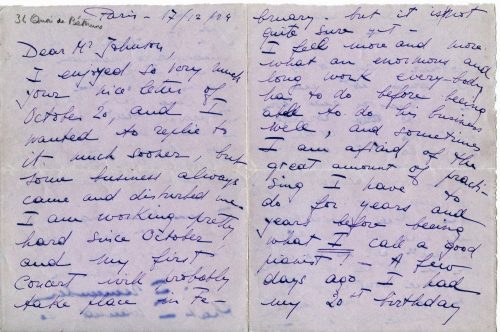 34 Quai de Béthune
Paris - 17/12/24
Dear Mr Johnson,
I enjoyed so very much
your nice letter of
October 20, and I
wanted to reply to
it much sooner, but
some business always
came and disturbed me
I am working pretty
hard since October
and my first
Concert will probably
take place in Fe-
bruary - but it is not
quite sure yet -
I feel more and more
what an enormous and
long work everybody
has to do before being
able to do his business
well, and sometimes
I am afraid of the
great amount of practi-
sing I have to
do for years and
years before being
what I call a good
pianist! - A few
days ago I had
my 20st birthday